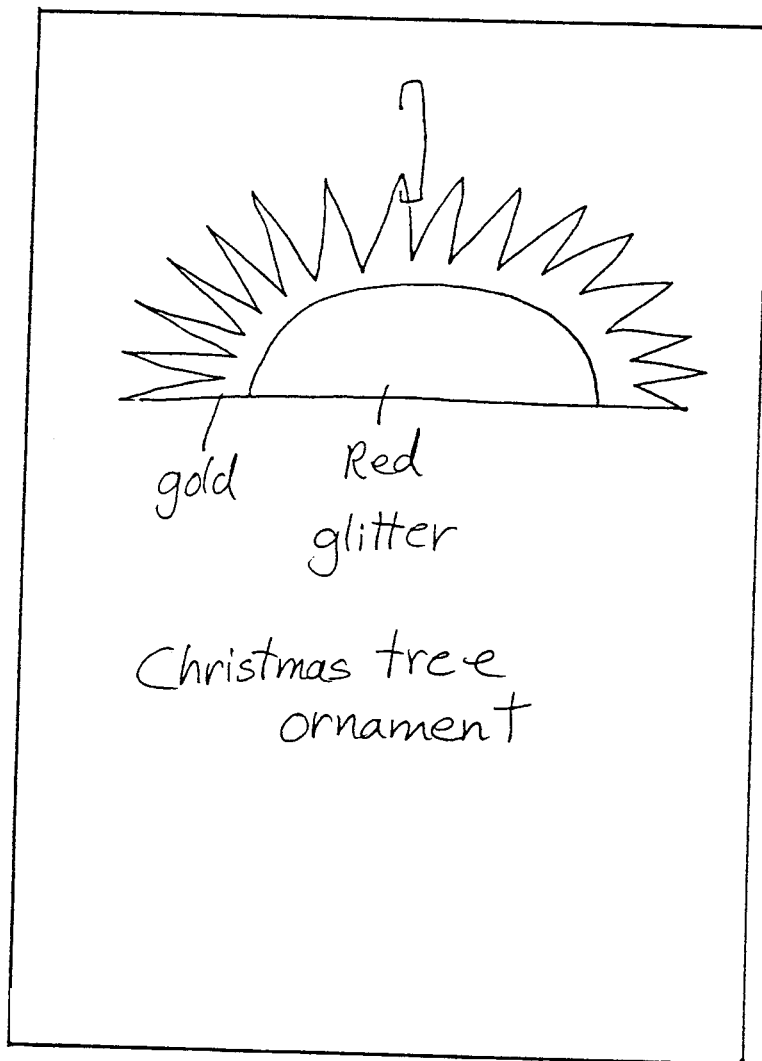 gold
Red
glitter
Christmas tree
ornament